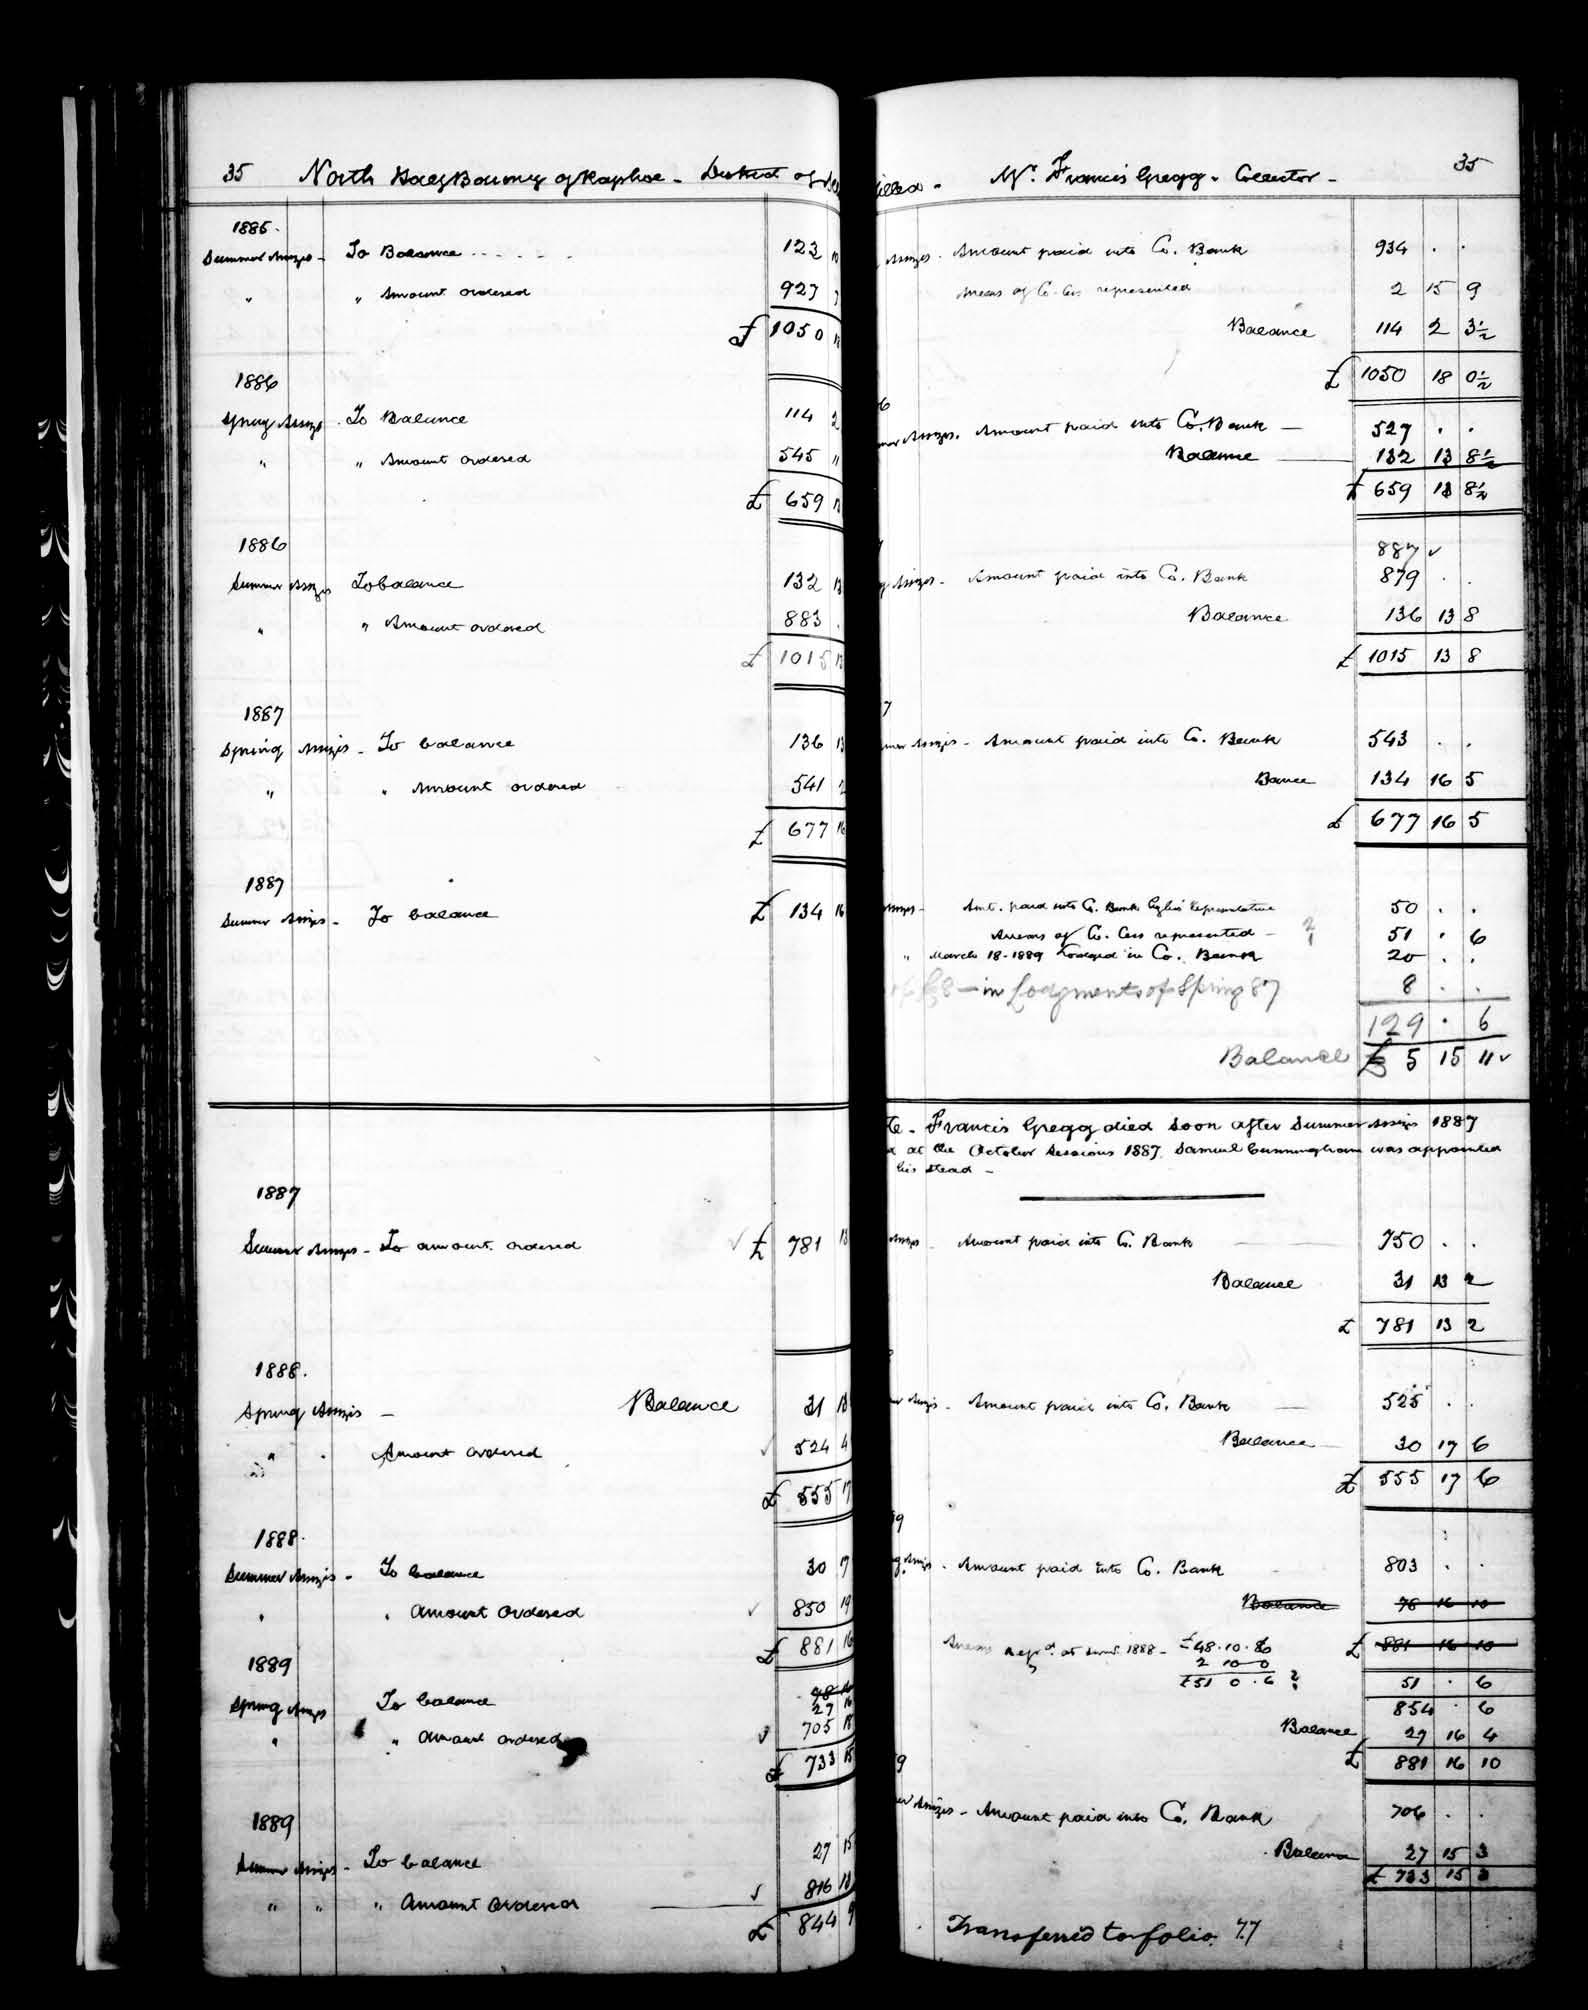 35 North Half Barony of Raphoe - District of
1885.
Summer Assizes - To Balance 123
" " Amount ordered 927
£ 1050
1886
Spring Assizes. To Balance 114 2
" " Amount ordered 545 "
£ 659 13
1886
Summer Assizes To balance 132 13
" " Amount ordered 883 .
£ 1015 13
1887
Spring Assizes - To balance 136 13
" " Amount ordered 541 2
£ 677 16
1887
Summer Assizes - To balance £ 134 16
1887
Summer Assizes - To amount ordered £ 781 13
1888.
Spring Assizes - Balance 31 13
" . Amount ordered 524 4
£ 555 17
1888.
Summer Assizes - To balance 30 17
" . Amount Ordered 850 19
£ 881 16
1889
Spring Assizes To balance 78 16
27 16
" " Amount ordered 705 18
£ 733 15
1889
Summer Assizes - To balance 27 15
" " " Amount Ordered 816 13
£ 844 9
Mr. Francis Gregg - Collector - 35
Assizes. Amount paid into Co. Bank 934 . .
Arrears of Co. Cess represented 2 15 9
Balance 114 2 3½
£ 1050 18 0½
6
Assizes. Amount paid into Co. Bank - 527 . .
Balance 132 13 8½
£ 659 13 8½
887 ✓
Assizes - Amount paid into Co. Bank 879 . .
Balance 136 13 8
£ 1015 13 8
7
Assizes - Amount paid into Co. Bank 543 . .
Bance 134 16 5
£ 677 16 5
Assizes - Amt. paid into Co. Bank by his Representative 50 . .
Arrears of Co. Cess represented - 51 . 6
" March 18-1889 Lodged in Co. Bank 20 . .
£8 - in Lodgments of Spring 87 8 . .
129 . 6
Balance £ 5 15 11 ✓
Francis Gregg died soon after Summer Assizes 1887
at the October Sessions 1887 Samuel Cunningham was appointed
his stead -
Assizes - Amount paid into Co. Bank 750 . .
Balance 31 13 2
£ 781 13 2
Assizes - Amount paid into Co. Bank 525 . .
Balance - 30 17 6
£ 555 17 6
Assizes - Amount paid into Co. Bank 803 . .
Balance 78 16 10
£ 881 16 10
Arrears repd. at Sumr. 1888 - £48.10.6
2 10 0
£51 0.6 ? 51 . 6
854 . 6
Balance 27 16 4
£ 881 16 10
9
Assizes - Amount paid into Co. Bank 706 . .
Balance 27 15 3
£ 733 15 3
Transferred to folio 77